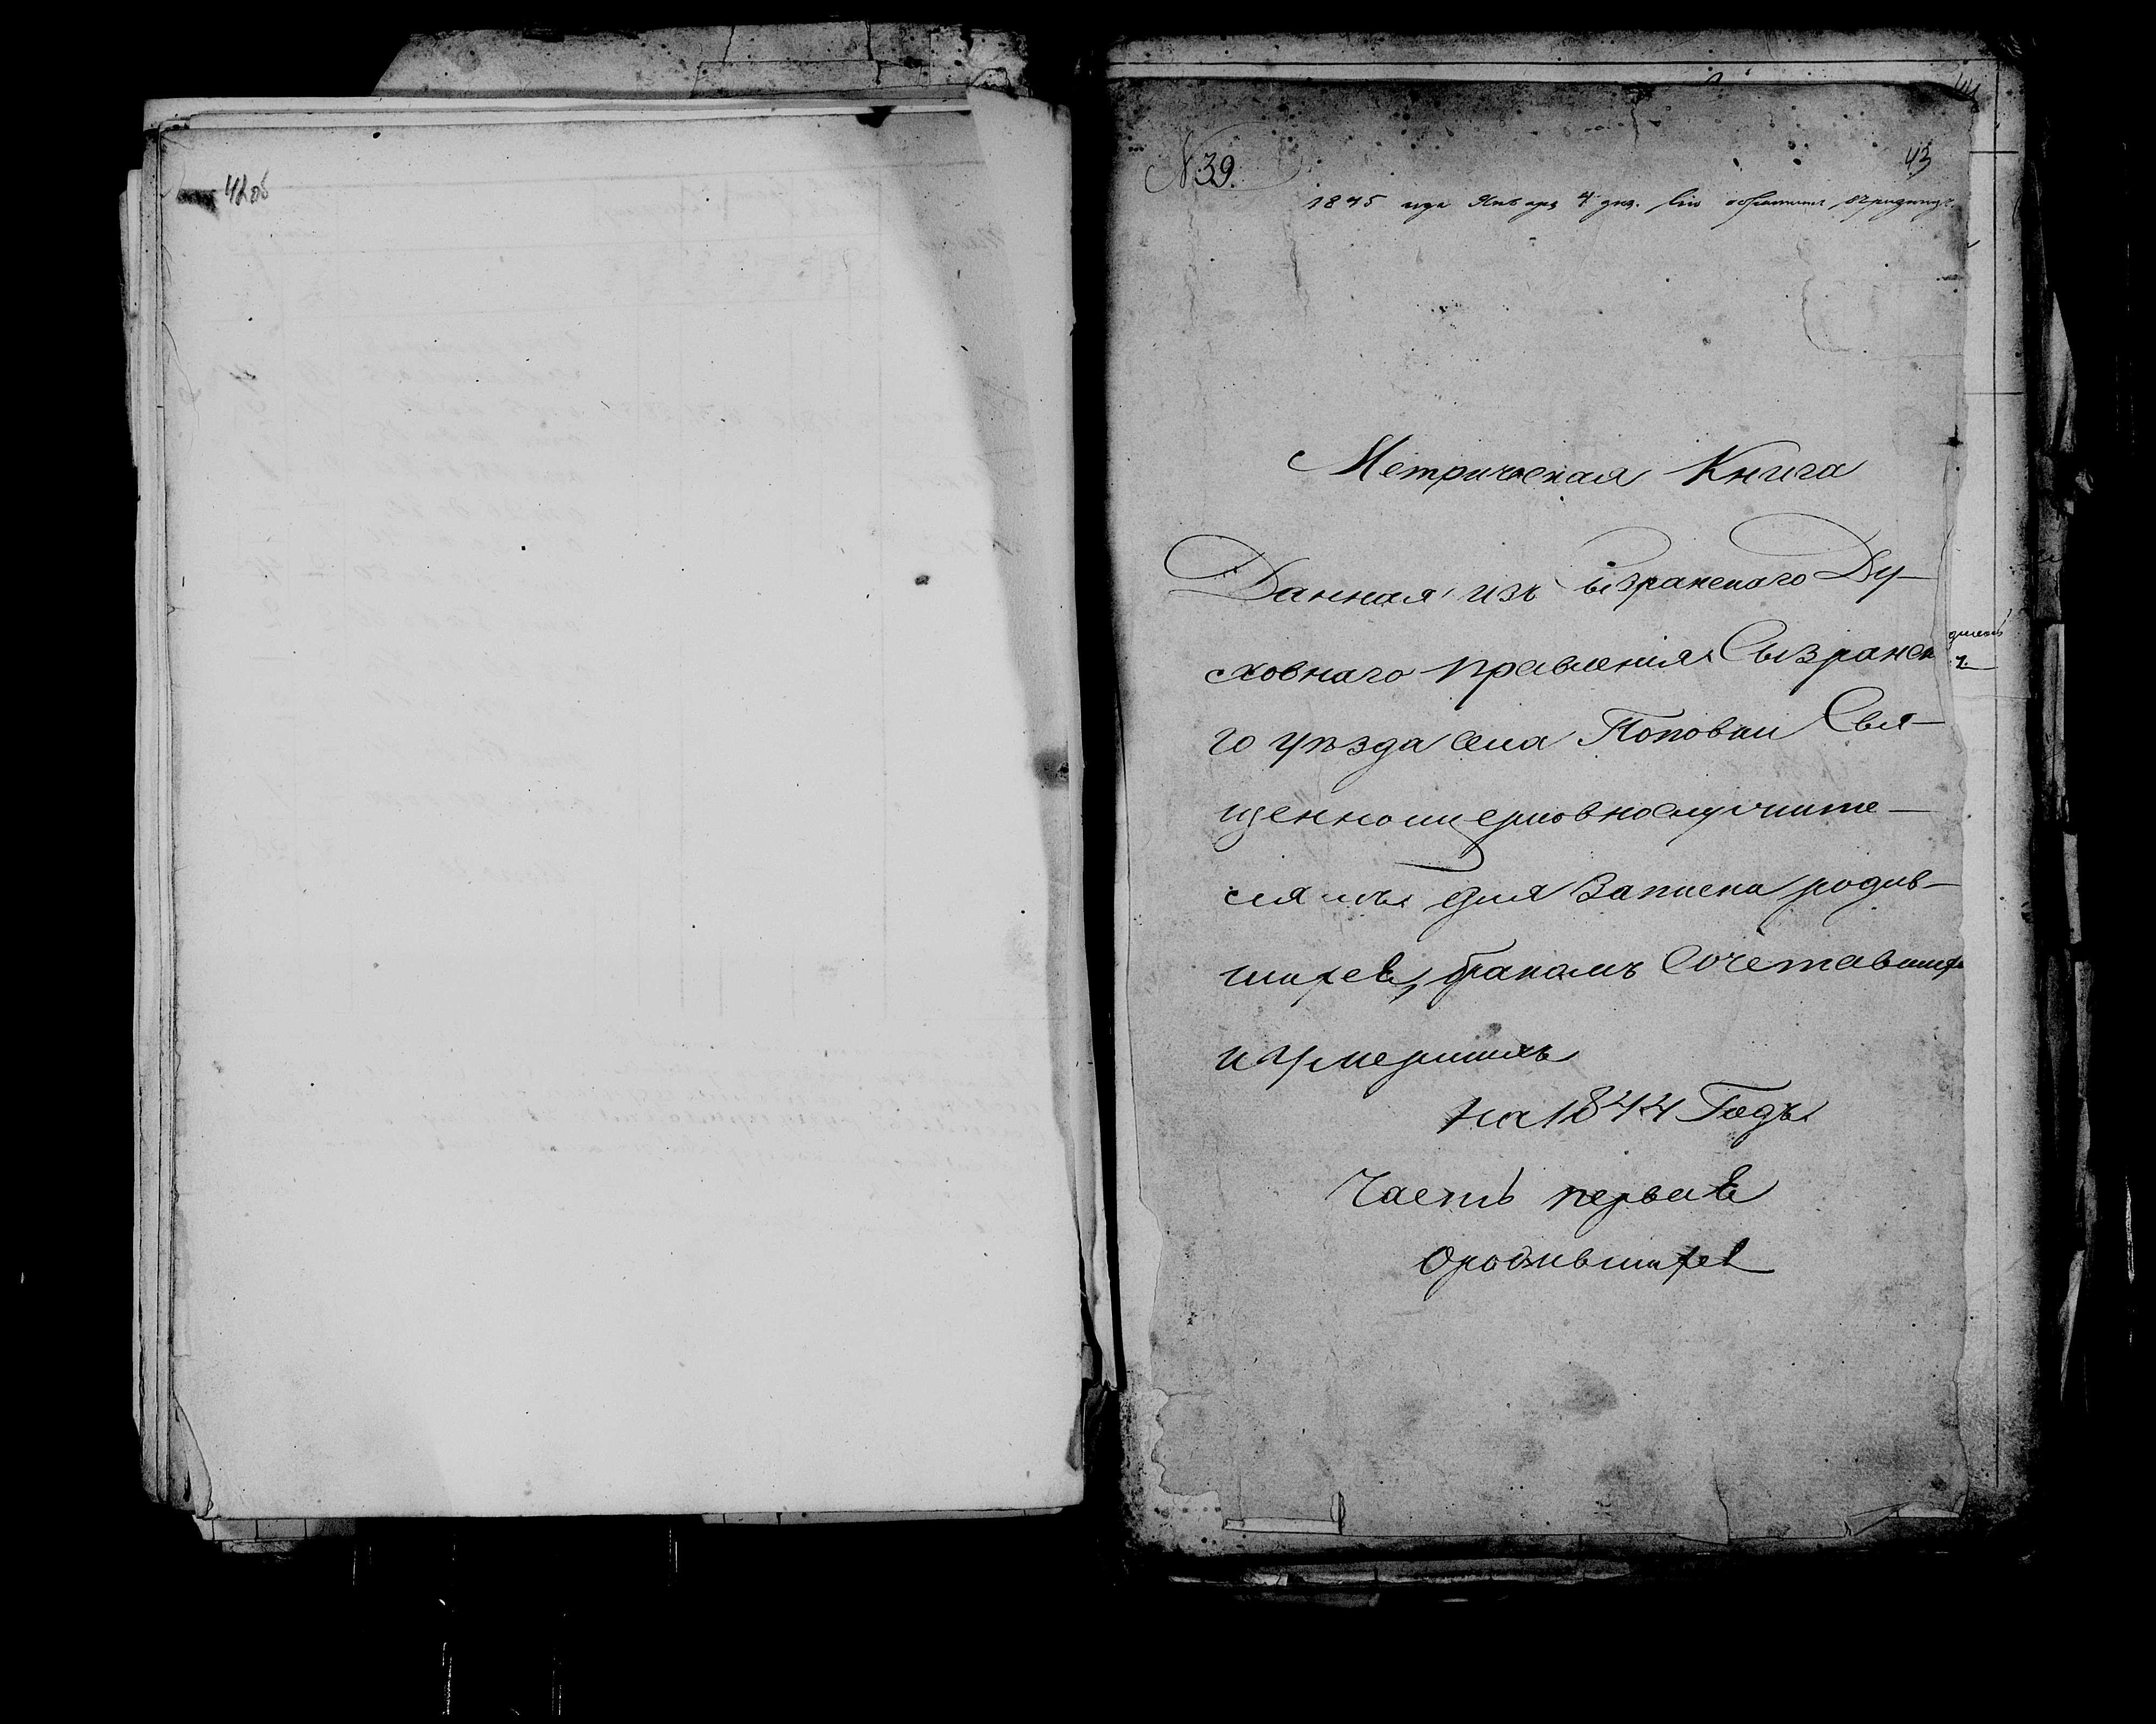 42об
№ 39.
43
1845 года Января 4 дня.
Метрическая Книга
Данная изъ Сызранскаго Ду-
ховнаго правления Сызранска
го уѣзда села Поповки Свя-
щенноцерковнослужите-
лямъ для Записки родив-
шихся, бракомъ Сочетавшихся
и умершихъ
на 1844 Годъ
Часть первая
О родившихся